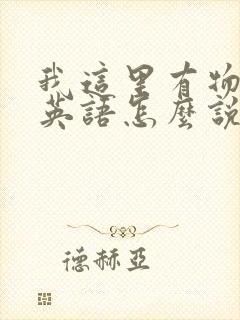 我這里有物
英語怎麼說
德赫亞